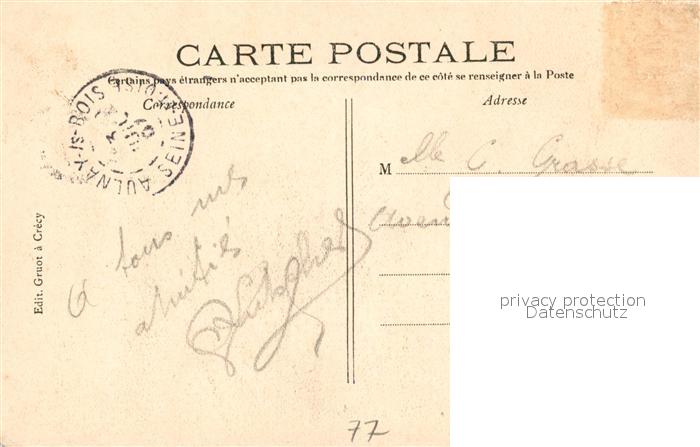 CARTE POSTALE
Certains pays étrangers n'acceptant pas la correspondance de ce côté se renseigner à la Poste
Correspondance
Adresse
AULNAY-LS-BOIS SEINE-ET-OISE
M elle C. Grasse
Aven
A tous mes
amitiés
Edit. Gruot à Crécy
privacy protection
Datenschutz
77